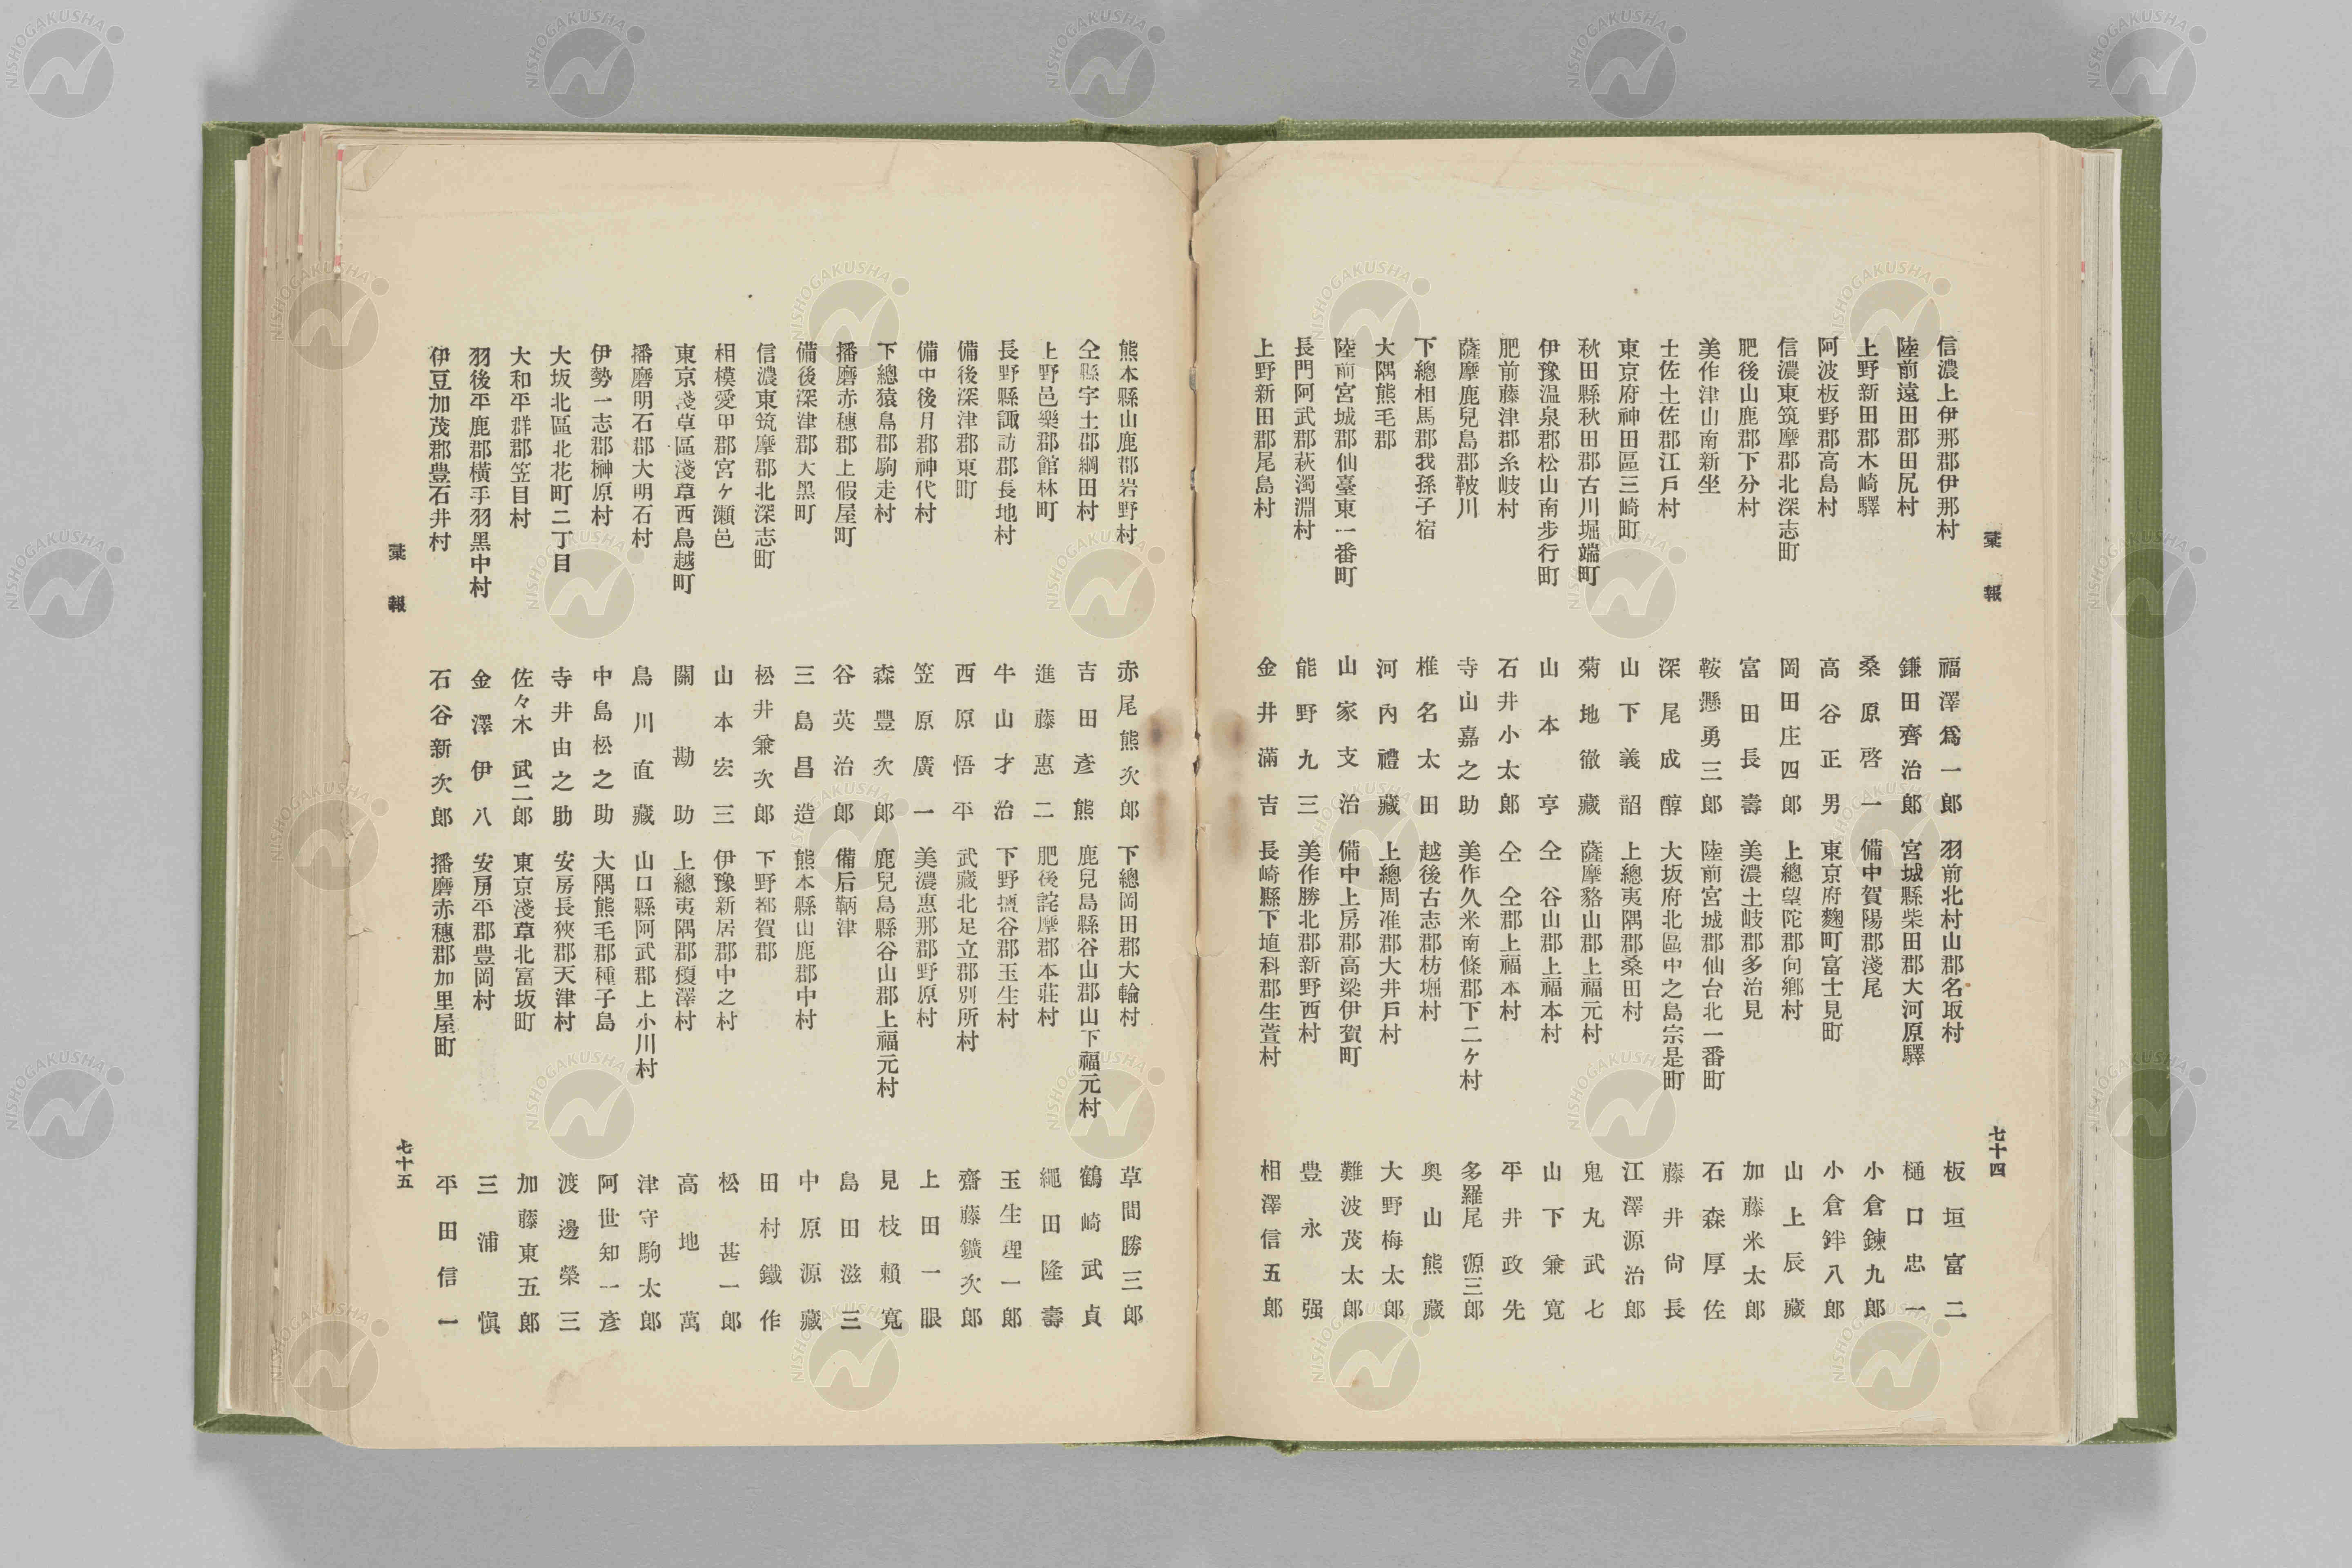 彙報
七十四
信濃上伊那郡伊那村 福澤爲一郎
陸前遠田郡田尻村 鎌田齊治郎
上野新田郡木崎驛 桑原啓一
阿波板野郡高島村 高谷正男
信濃東筑摩郡北深志町 岡田庄四郎
肥後山鹿郡下分村 富田長壽
美作津山南新坐 鞍懸勇三郎
土佐土佐郡江戸村 深尾成醇
東京府神田區三崎町 山下義韶
秋田縣秋田郡古川堀端町 菊地徹藏
伊豫温泉郡松山南步行町 山本亨
肥前藤津郡糸岐村 石井小太郎
薩摩鹿兒島郡鞁川 寺山嘉之助
下總相馬郡我孫子宿 椎名太田
大隅熊毛郡 河內禮藏
陸前宮城郡仙臺東一番町 山家支治
長門阿武郡萩濁淵村 能野九三
上野新田郡尾島村 金井滿吉
羽前北村山郡名取村 板垣富二
宮城縣柴田郡大河原驛 樋口忠一
備中賀陽郡淺尾 小倉鍊九郎
東京府麴町富士見町 小倉鉡八郎
上總望陀郡向鄉村 山上辰藏
美濃土岐郡多治見 加藤米太郎
陸前宮城郡仙台北一番町 石森厚佐
大坂府北區中之島宗是町 藤井尙長
上總夷隅郡桑田村 江澤源治郎
薩摩谿山郡上福元村 鬼丸武七
仝 谷山郡上福本村 山下兼寬
仝 仝郡上福本村 平井政先
美作久米南條郡下二ケ村 多羅尾源三郎
越後古志郡枋堀村 奧山熊藏
上總周准郡大井戸村 大野梅太郎
備中上房郡高梁伊賀町 難波茂太郎
美作勝北郡新野西村 豊永强
長崎縣下埴科郡生萱村 相澤信五郎
熊本縣山鹿郡岩野村 赤尾熊次郎
仝縣宇土郡綱田村 吉田彥熊
上野邑樂郡館林町 進藤惠二
長野縣諏訪郡長地村 牛山才治
備後深津郡東町 西原悟平
備中後月郡神代村 笠原廣一
下總猿島郡駒走村 森豊次郎
播磨赤穗郡上假屋町 谷英治郎
備後深津郡大黑町 三島昌造
信濃東筑摩郡北深志町 松井兼次郎
相模愛甲郡宮ケ瀨邑 山本宏三
東京淺草區淺草西鳥越町 關勘助
播磨明石郡大明石村 鳥川直藏
伊勢一志郡榊原村 中島松之助
大坂北區北花町二丁目 寺井由之助
大和平群郡笠目村 佐々木武二郎
羽後平鹿郡橫手羽黑中村 金澤伊八
伊豆加茂郡豊石井村 石谷新次郎
下總岡田郡大輪村 草間勝三郎
鹿兒島縣谷山郡山下福元村 鶴崎武貞
肥後詫摩郡本莊村 繩田隆壽
下野鹽谷郡玉生村 玉生理一郎
武藏北足立郡別所村 齋藤鑛次郎
美濃惠那郡野原村 上田一眼
鹿兒島縣谷山郡上福元村 見枝賴寬
備后鞆津 島田滋三
熊本縣山鹿郡中村 中原源藏
下野都賀郡 田村鐵作
伊豫新居郡中之村 松甚一郎
上總夷隅郡榎澤村 高地萬
山口縣阿武郡上小川村 津守駒太郎
大隅熊毛郡種子島 阿世知一彥
安房長狹郡天津村 渡邊榮三
東京淺草北富坂町 加藤東五郎
安房平郡豊岡村 三浦愼
播磨赤穗郡加里屋町 平田信一
彙報
七十五